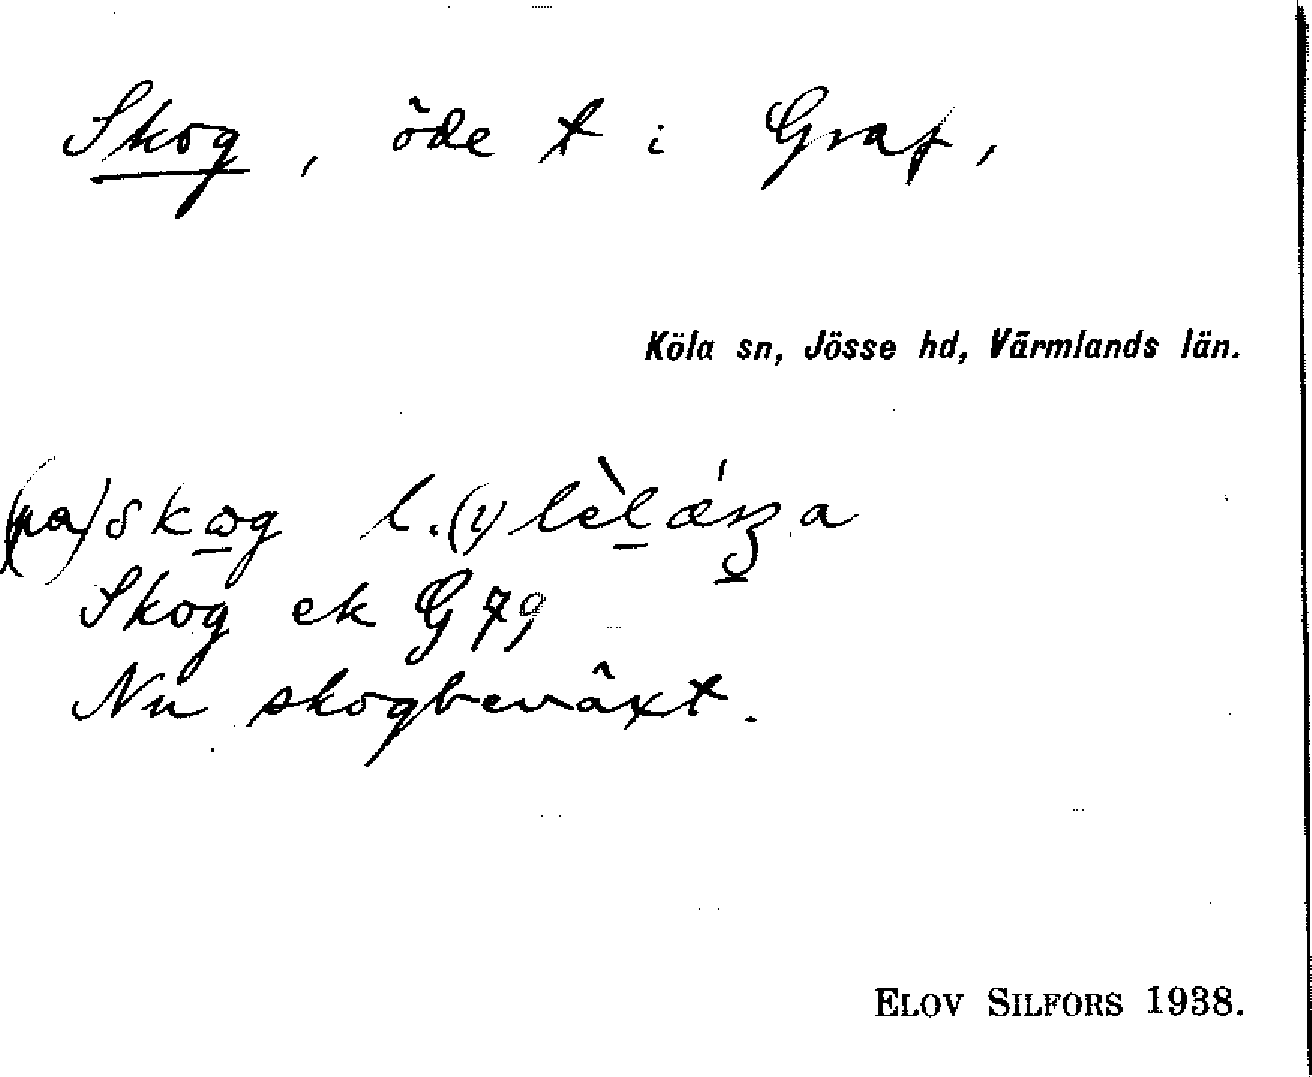 Skog, öde t i Graf,
Köla sn, Jösse hd, Värmlands län.
(pa) skωg l. (i) lèlǽŋa
Skog ek G 79
Nu skogbeväxt.
ELOV SILFORS 1938.